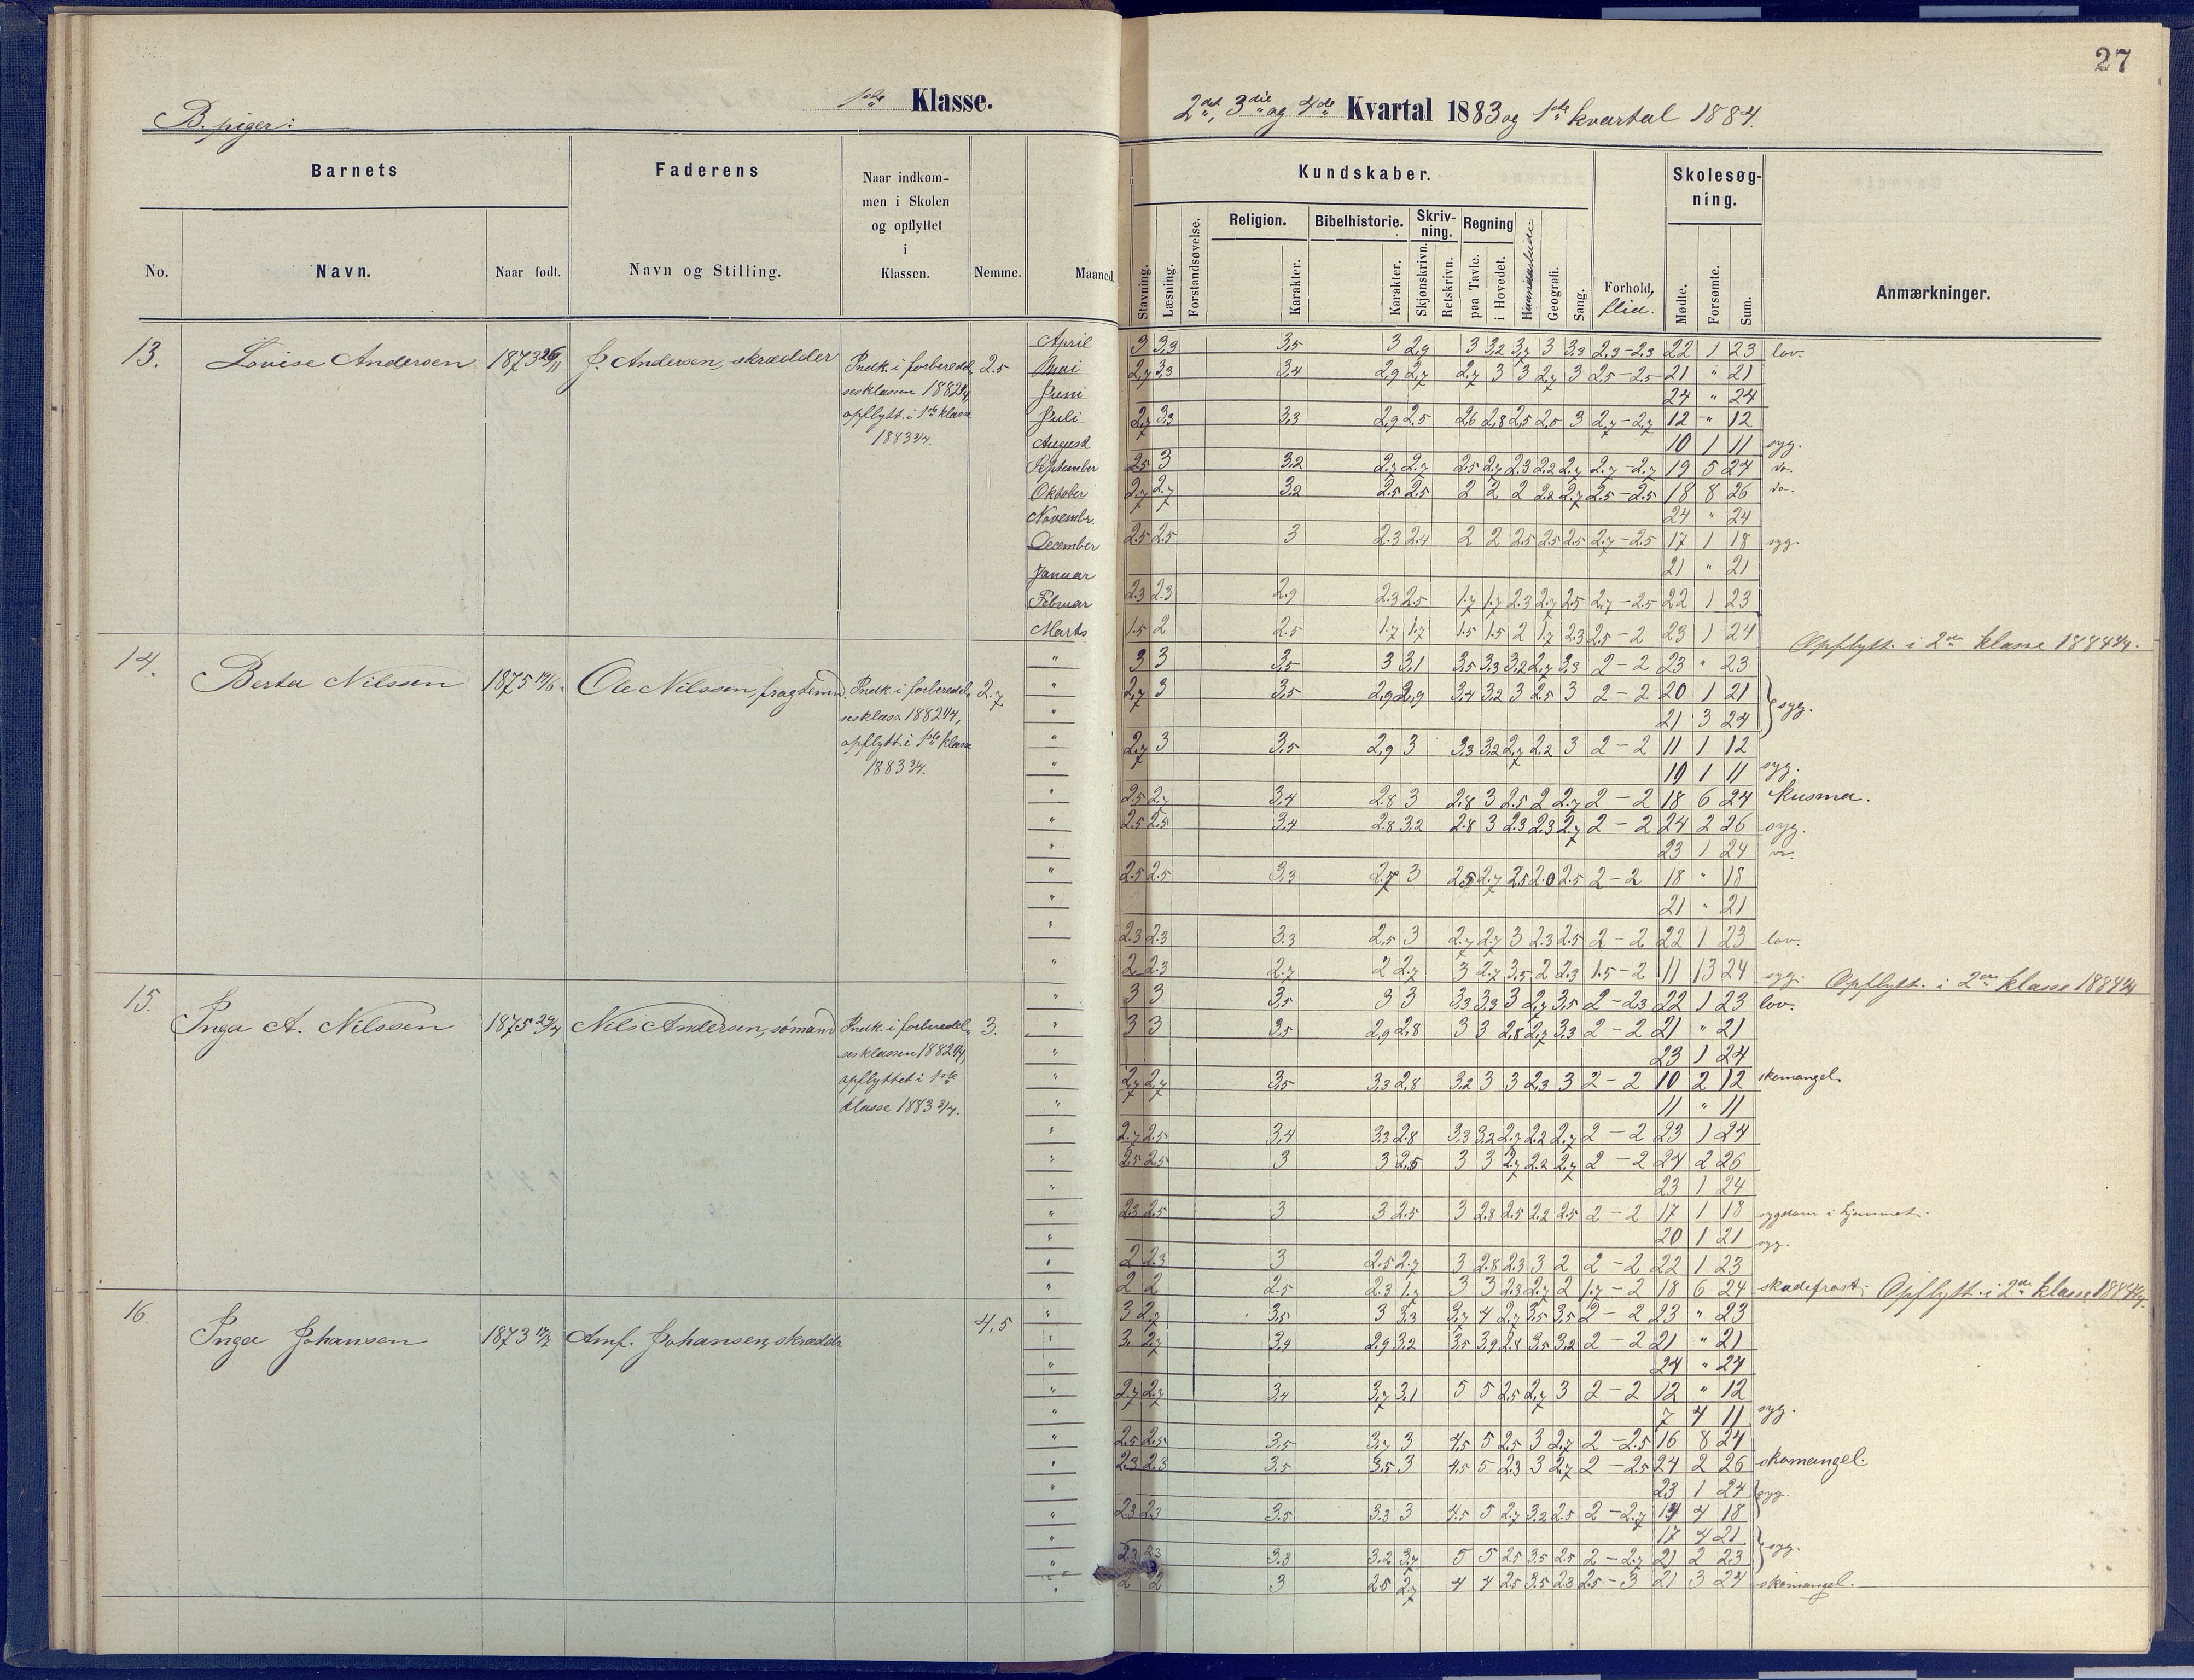 27
1ste Klasse.
B. piger:
2det, 3die og 4de Kvartal 1883 og 1ste kvartal 1884.
Barnets
Faderens
Naar indkom-
men i Skolen
og opflyttet
i
Klassen.
No.
Navn.
Naar født.
Navn og Stilling.
Nemme.
Maaned.
Kundskaber.
Skolesøg-
ning.
Religion.
Bibelhistorie.
Skriv-
ning.
Regning
Stavning.
Læsning.
Forstandsøvelse.
Karakter.
Karakter.
Skjønskrivn.
Retskrivn.
paa Tavle.
i Hovedet.
Haandarbeide
Geografi.
Sang.
Forhold,
flid.
Mødte.
Forsømte.
Sum.
Anmærkninger.
13. Lovise Andersen 1873 26/11 J. Andersen, skrædder Indk. i forberedel- 2.5
sesklassen 1882 2/4,
opflytt. i 1ste klasse
1883 3/4.
April 3 3,3 3,5 3 2,9 3 3,2 3,7 3 3,3 2,3-2.3 22 1 23 lov.
Mai 2,7 3,3 3,4 2,9 2,7 2,7 3 3 2,7 3 2.5-2.5 21 " 21
Juni 24 " 24
Juli 2,7 3,3 3,3 2,9 2.5 2,6 2,8 2,5 2,5 3 2,7-2,7 12 " 12
August 10 1 11 syg.
September 2.5 3 3.2 2.7 2.7 2.5 2.7 2.3 2.2 2.7 2.7-2.7 19 5 24 do.
Oktober 2.7 2.7 3.2 2.5 2.5 2 2 2 2.2 2.7 2.5-2.5 18 8 26 do.
Novembr. 24 " 24
December 2.5 2.5 3 2.3 2.4 2 2 2.5 2.5 2.5 2.7-2.5 17 1 18 syg.
Januar 21 " 21
Februar 2.3 2.3 2.9 2.3 2.5 1.7 1.7 2.3 2.7 2.5 2.7-2.5 22 1 23
Marts 1.5 2 2.5 1.7 1.7 1.5 1.5 2 1.7 2.3 2.5-2 23 1 24 Opflytt. i 2den klasse 1884 2/4.
14. Berta Nilssen 1875 Ole Nilssen, fragtemn. Indk. i forberedel- 2.7
sesklass. 1882 2/4,
opflytt. i 1ste klasse
1883 3/4.
" 3 3 3,5 3 3,1 3,5 3,3 3,2 2,7 3,3 2-2 23 " 23
" 2,7 3 3,5 2,9 2,9 3,4 3,2 3 2.5 3 2-2 20 1 21 syg.
" 21 3 24
" 2,7 3 3,5 2,9 3 3,3 3,2 2,7 2.2 3 2-2 11 1 12
" 10 1 11 syg.
" 2.5 2.7 3.4 2.8 3 2.8 3 2.5 2 2.7 2-2 18 6 24 kusma.
" 2.5 2.5 3.4 2.8 3.2 2.8 3 2.3 2.3 2.7 2-2 24 2 26 syg.
" 23 1 24 do.
" 2.5 2.5 3.3 2.7 3 2.5 2.7 2.5 2.0 2.5 2-2 18 " 18
" 21 " 21
" 2.3 2.3 3.3 2.5 3 2.7 2.7 3 2.3 2.5 2-2 22 1 23 lov.
" 2 2.3 2.7 2 2.7 3 2.7 3.5 2 2.3 1.5-2 11 13 24 syg. Opflytt. i 2den klasse 1884 2/4
15. Inga A. Nilssen 1875 29/7 Nils Andersen, sømand Indk. i forberedel- 3.
sesklassen 1882 2/4,
opflyttet i 1ste
klasse 1883 3/4.
" 3 3 3,5 3 3 3,3 3,3 3 2,7 3,5 2-2.3 22 1 23 lov.
" 3 3 3,5 2,9 2,8 3 3 2,8 2,7 3,3 2-2 21 " 21
" 23 1 24
" 2,7 2,7 3,5 3,3 2,8 3,2 3 3 2,3 3 2-2 10 2 12 skomangel.
" 11 " 11
" 2.7 2.5 3.4 3.3 2.8 3.3 3.2 2.7 2.2 2.7 2-2 23 1 24
" 2.5 2.5 3 3 2.5 3 3 2.7 2.2 2.7 2-2 24 2 26
" 23 1 24
" 2.3 2.5 3 3 2.5 3 2.8 2.5 2.2 2.5 2-2 17 1 18 sygdom i hjemmet.
" 20 1 21 syg.
" 2 2.3 3 2.5 2.7 3 2.8 2.3 3 2 2-2 22 1 23
" 2 2 2.5 2.3 1.7 3 3 2.3 2.7 2 1.7-2 18 6 24 skadefrost. Opflytt. i 2den klasse 1884 2/4.
16 Inga Johansen 1873 Amf. Johansen, skrædder 4,5
" 3 2,7 3,5 3 3,3 3,7 4 2,7 3,5 3,5 2-2 23 " 23
" 3 2,7 3,4 2,9 3,2 3,5 3,9 2,8 3,5 3,2 2-2 21 " 21
" 24 " 24
" 2,7 2,7 3,4 3,7 3,1 5 5 2,5 2,7 3 2-2 12 " 12
" 7 4 11 syg.
" 2.5 2.5 3.5 3.7 3 4.5 5 2.5 3 2.7 2-2.5 16 8 24
" 2.3 2.3 3.5 3.5 3 4.5 5 2.3 3 2.7 2-2.5 24 2 26 skomangel.
" 23 1 24 syg.
" 2.3 2.3 3.5 3.3 3 4.5 5 2.7 3.2 2.5 2-2.7 14 4 18
" 17 4 21 syg.
" 2.3 2.3 3.3 3.2 3.7 5 5 2.5 3.5 2.5 2-2.7 21 2 23
" 2 2 3 2.5 2.7 4 4 2.5 3.5 2.8 2.5-3 21 3 24 skomangel.